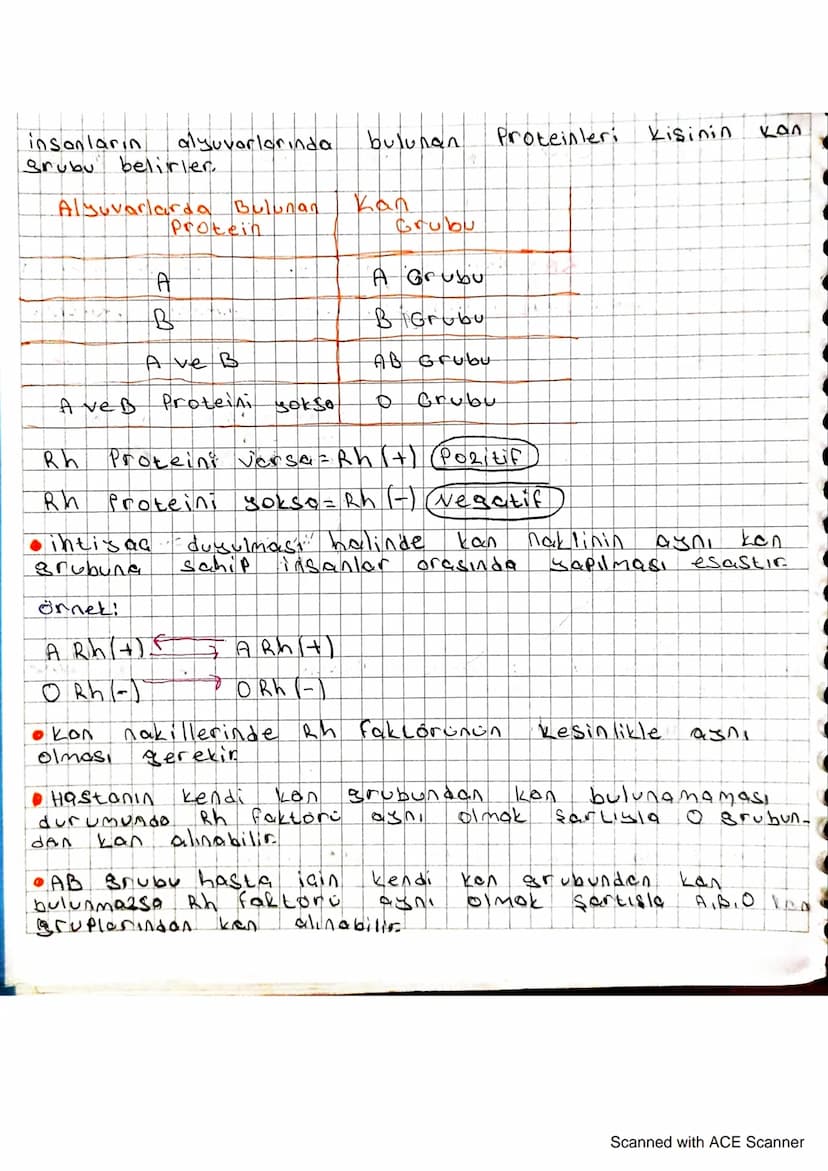 insanların alyuvarlarında bulunan Proteinleri kişinin kan
grubu belirler.
Alyuvarlarda Bulunan Protein Kan Grubu
A A Grubu
B B Grubu
A ve B AB Grubu
A ve B Proteini yoksa O Grubu
Rh Proteini varsa = Rh (+) Pozitif
Rh Proteini yoksa = Rh (-) Negatif
• ihtiyaç duyulması halinde kan naklinin aynı kan
grubuna sahip insanlar arasında yapılması esastır.
örnek:
A Rh(+) A Rh(+)
O Rh(-) O Rh (-)
• Kan nakillerinde Rh faktörünün kesinlikle aynı
olması gerekir.
• Hastanın kendi kan grubundan kan bulunamaması
durumunda Rh faktörü aynı olmak şartıyla O grubun-
dan kan alınabilir.
• AB grubu hasta için kendi kan grubundan kan
bulunmazsa Rh faktörü aynı olmak şartıyla A,B,O kan
gruplarından kan alınabilir.
Scanned with ACE Scanner